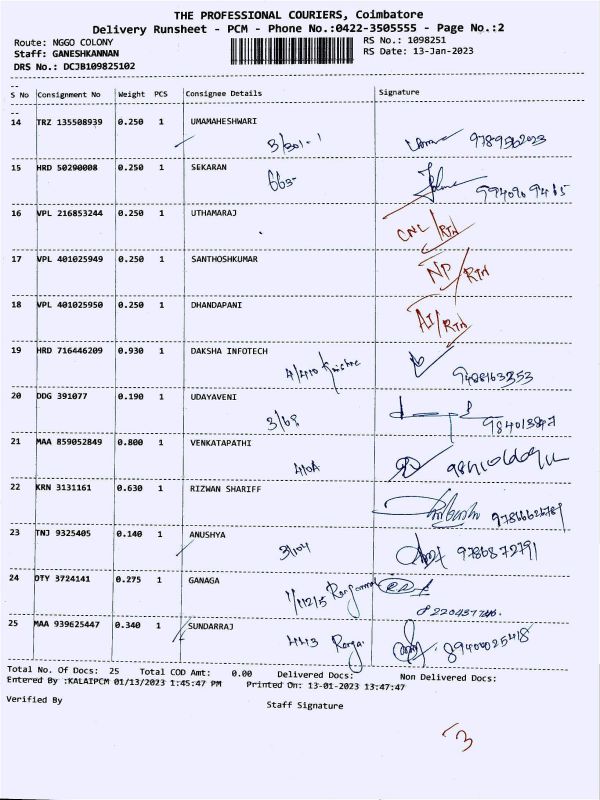 THE PROFESSIONAL COURIERS, Coimbatore
Delivery Runsheet - PCM - Phone No.:0422-3505555 - Page No.:2
Route: NGGO COLONY
RS No.: 1098251
Staff: GANESHKANNAN
RS Date: 13-Jan-2023
DRS No.: DCJB109825102
S No Consignment No Weight PCS Consignee Details Signature
14 TRZ 135508939 0.250 1 UMAMAHESHWARI
3/301-1
15 HRD 50290008 0.250 1 SEKARAN
663-
16 VPL 216853244 0.250 1 UTHAMARAJ
CNL/RTN
17 VPL 401025949 0.250 1 SANTHOSHKUMAR
NP/RTN
18 VPL 401025950 0.250 1 DHANDAPANI
AI/RTN
19 HRD 716446209 0.930 1 DAKSHA INFOTECH
9488163353
20 DDG 391077 0.190 1 UDAYAVENI
3/68
21 MAA 859052849 0.800 1 VENKATAPATHI
410A
22 KRN 3131161 0.630 1 RIZWAN SHARIFF
23 TNJ 9325405 0.140 1 ANUSHYA
3/104 9786872791
24 DTY 3724141 0.275 1 GANAGA
25 MAA 939625447 0.340 1 SUNDARRAJ
443 8940025418
Total No. Of Docs: 25 Total COD Amt: 0.00 Delivered Docs: Non Delivered Docs:
Entered By :KALAIPCM 01/13/2023 1:45:47 PM Printed On: 13-01-2023 13:47:47
Verified By
Staff Signature
3